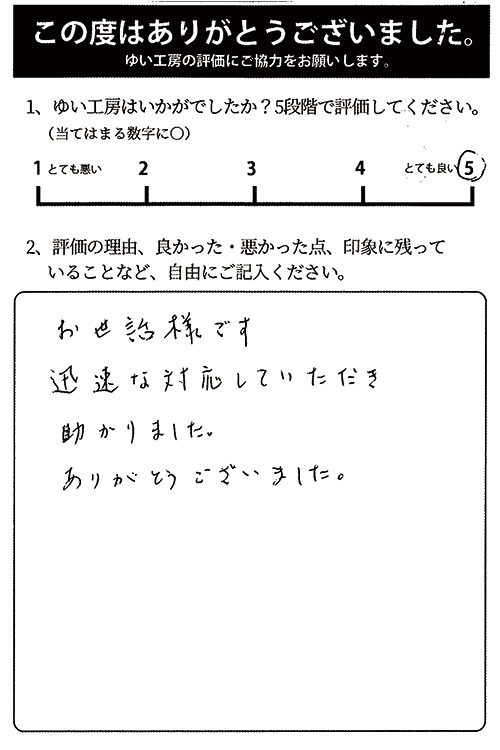 この度はありがとうございました。
ゆい工房の評価にご協力をお願いします。
1、ゆい工房はいかがでしたか？5段階で評価してください。
（当てはまる数字に○）
1 とても悪い 2 3 4 とても良い 5
2、評価の理由、良かった・悪かった点、印象に残って
いることなど、自由にご記入ください。
お世話様です
迅速な対応していただき
助かりました。
ありがとうございました。